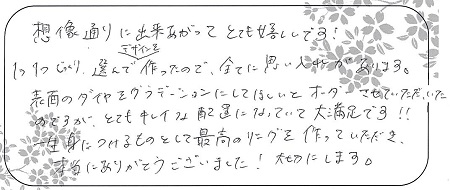 想像通りに出来あがってとても嬉しいです!
1つ1つじっくりデザインを選んで作ったので、全てに思い入れがあります。
表面のダイヤをグラデーションにしてほしいとオーダーさせていただいた
のですが、とてもキレイな配置になっていて大満足です!!
一生身につけるものとして最高のリングを作っていただき、
本当にありがとうございました!大切にします。